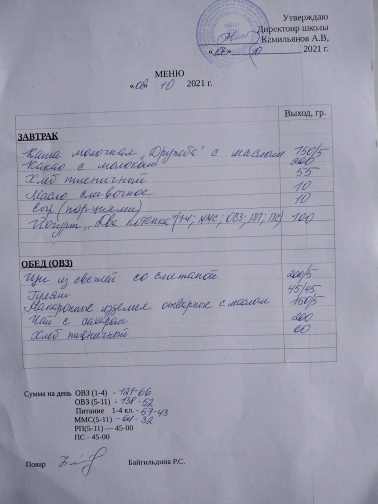 Утверждаю
Директонр школы
Камильянов А.В,
10 2021 г.
МЕНЮ
10 2021 г.
Выход, гр.
ЗАВТРАК
Каша молочная „Дружба" с маслом 150/5
Какао с молоком 200
Хлеб пшеничный 55
Масло сливочное 10
Сыр (порциями) 10
Йогурт „Два котенка" (1-4; ММС; ОВЗ; РП; ПС) 100
ОБЕД (ОВЗ)
Щи из свежей со сметаной 200/5
45/45
Макаронные изделия отварные с маслом 150/5
Чай с сахаром 200
Хлеб пшеничный 60
Сумма на день ОВЗ (1-4) - 121-66
ОВЗ (5-11) - 138-52
Питание 1-4 кл. - 57-43
ММС(5-11) - 64-32
РП(5-11) — 45-00
ПС - 45-00
Повар Байгильдина Р.С.